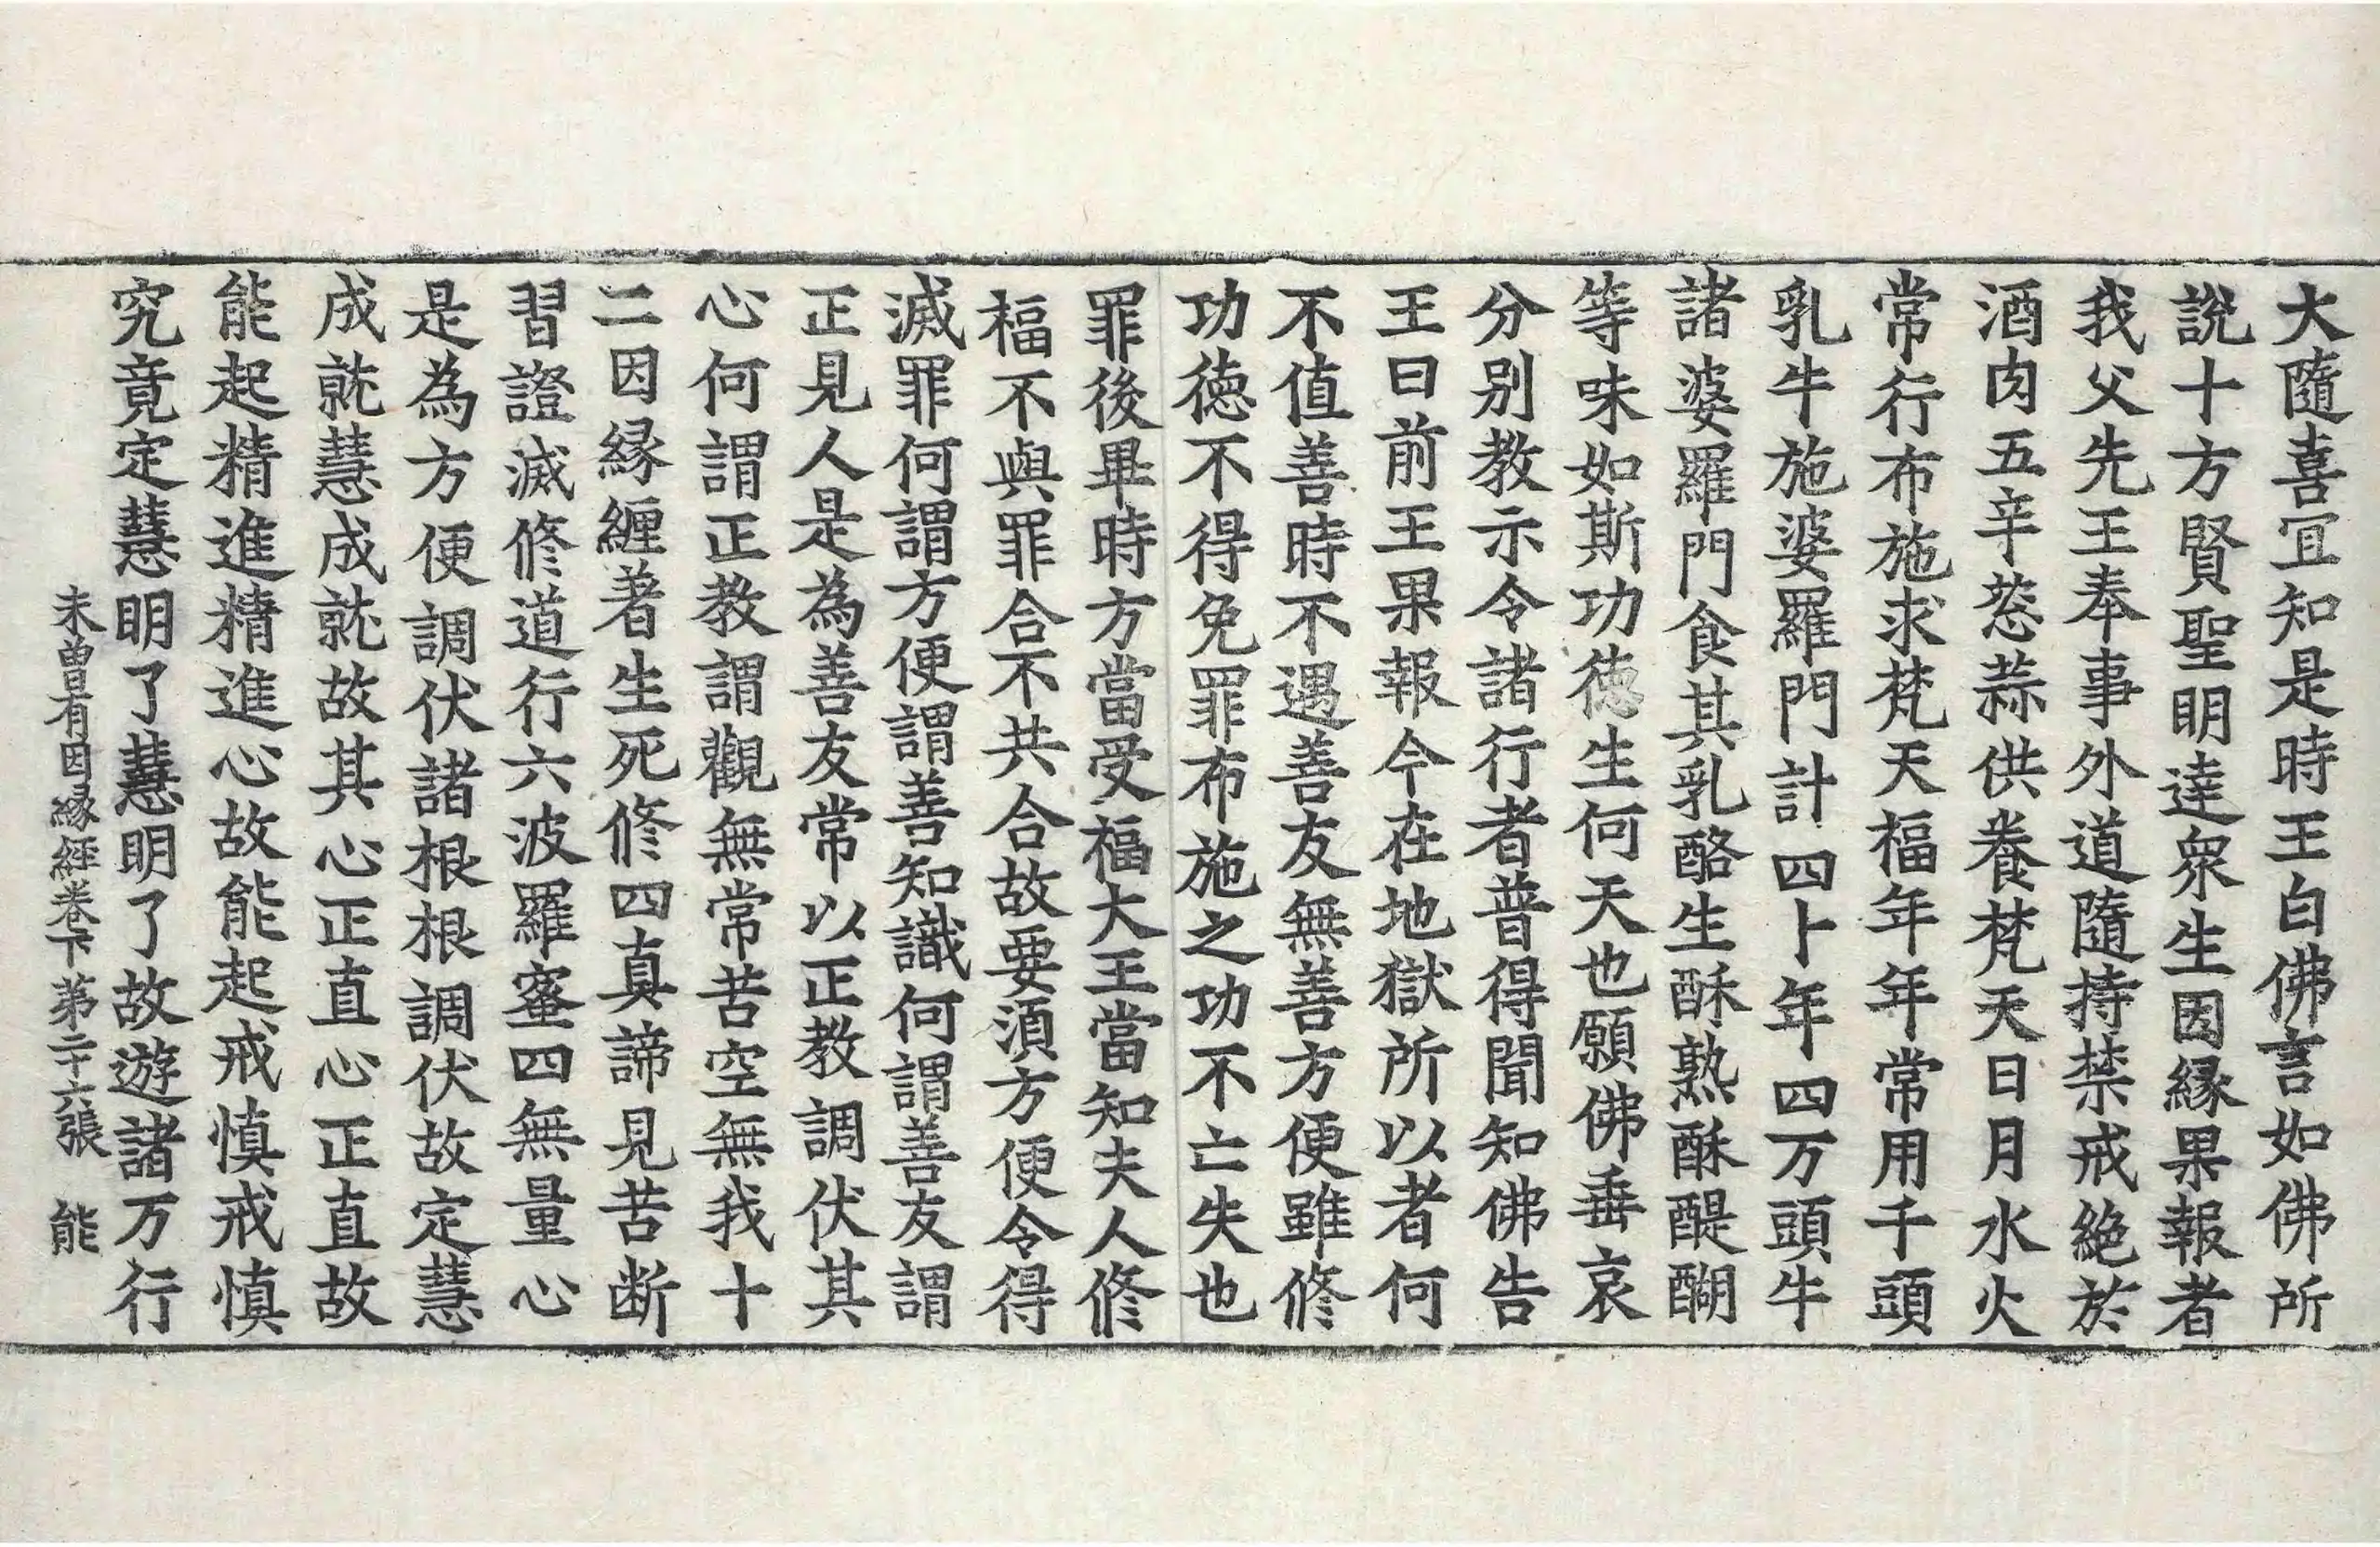 大隨喜冝知是時王白佛言如佛所
說十方賢聖明達衆生因縁果報者
我父先王奉事外道隨持禁戒絶於
酒肉五辛葱蒜供養梵天日月水火
常行布施求梵天福年年常用千頭
乳牛施婆羅門計四十年四万頭牛
諸婆羅門食其乳酪生酥熟酥醍醐
等味如斯功徳生何天也願佛垂哀
分別教示令諸行者普得聞知佛告
王曰前王果報今在地獄所以者何
不值善時不遇善友無善方便雖修
功徳不得免罪布施之功不亡失也
罪後畢時方當受福大王當知夫人修
福不與罪合不共合故要湏方便令得
滅罪何謂方便謂善知識何謂善友謂
正見人是為善友常以正教調伏其
心何謂正教謂觀無常苦空無我十
二因縁纒著生死修四真諦見苦断
習證滅修道行六波羅蜜四無量心
是為方便調伏諸根根調伏故定慧
成就慧成就故其心正直心正直故
能起精進精進心故能起戒慎戒慎
究竟定慧明了慧明了故遊諸万行
未曽有因縁經卷下 第二十六張 能